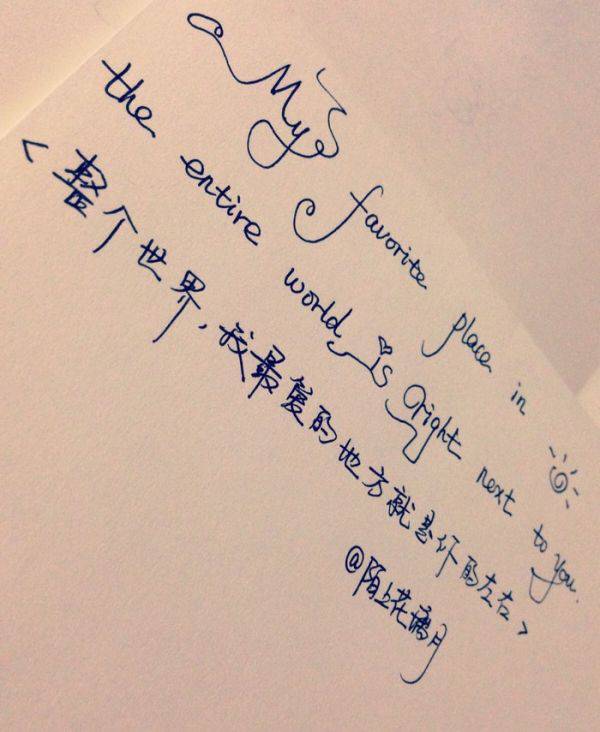 My favorite place in
the entire world is right next to you.
<整个世界,我最爱的地方就是你的左右>
@陌上花离月